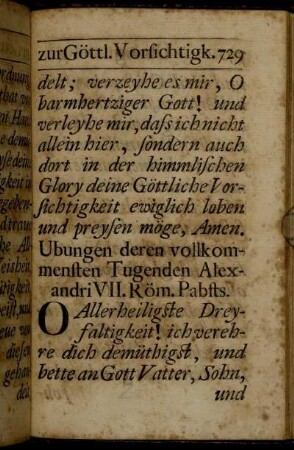 zur Göttl. Vorsichtigk. 729
delt; verzeyhe es mir, O
barmhertziger Gott! und
verleyhe mir, daſs ich nicht
allein hier, ſondern auch
dort in der himmliſchen
Glory deine Göttliche Vor-
ſichtigkeit ewiglich loben
und preyſen möge, Amen.
Ubungen deren vollkom-
menſten Tugenden Alex-
andri VII. Röm. Pabſts.
O Allerheiligſte Drey-
faltigkeit! ich vereh-
re dich demüthigſt, und
bette an Gott Vatter, Sohn,
und